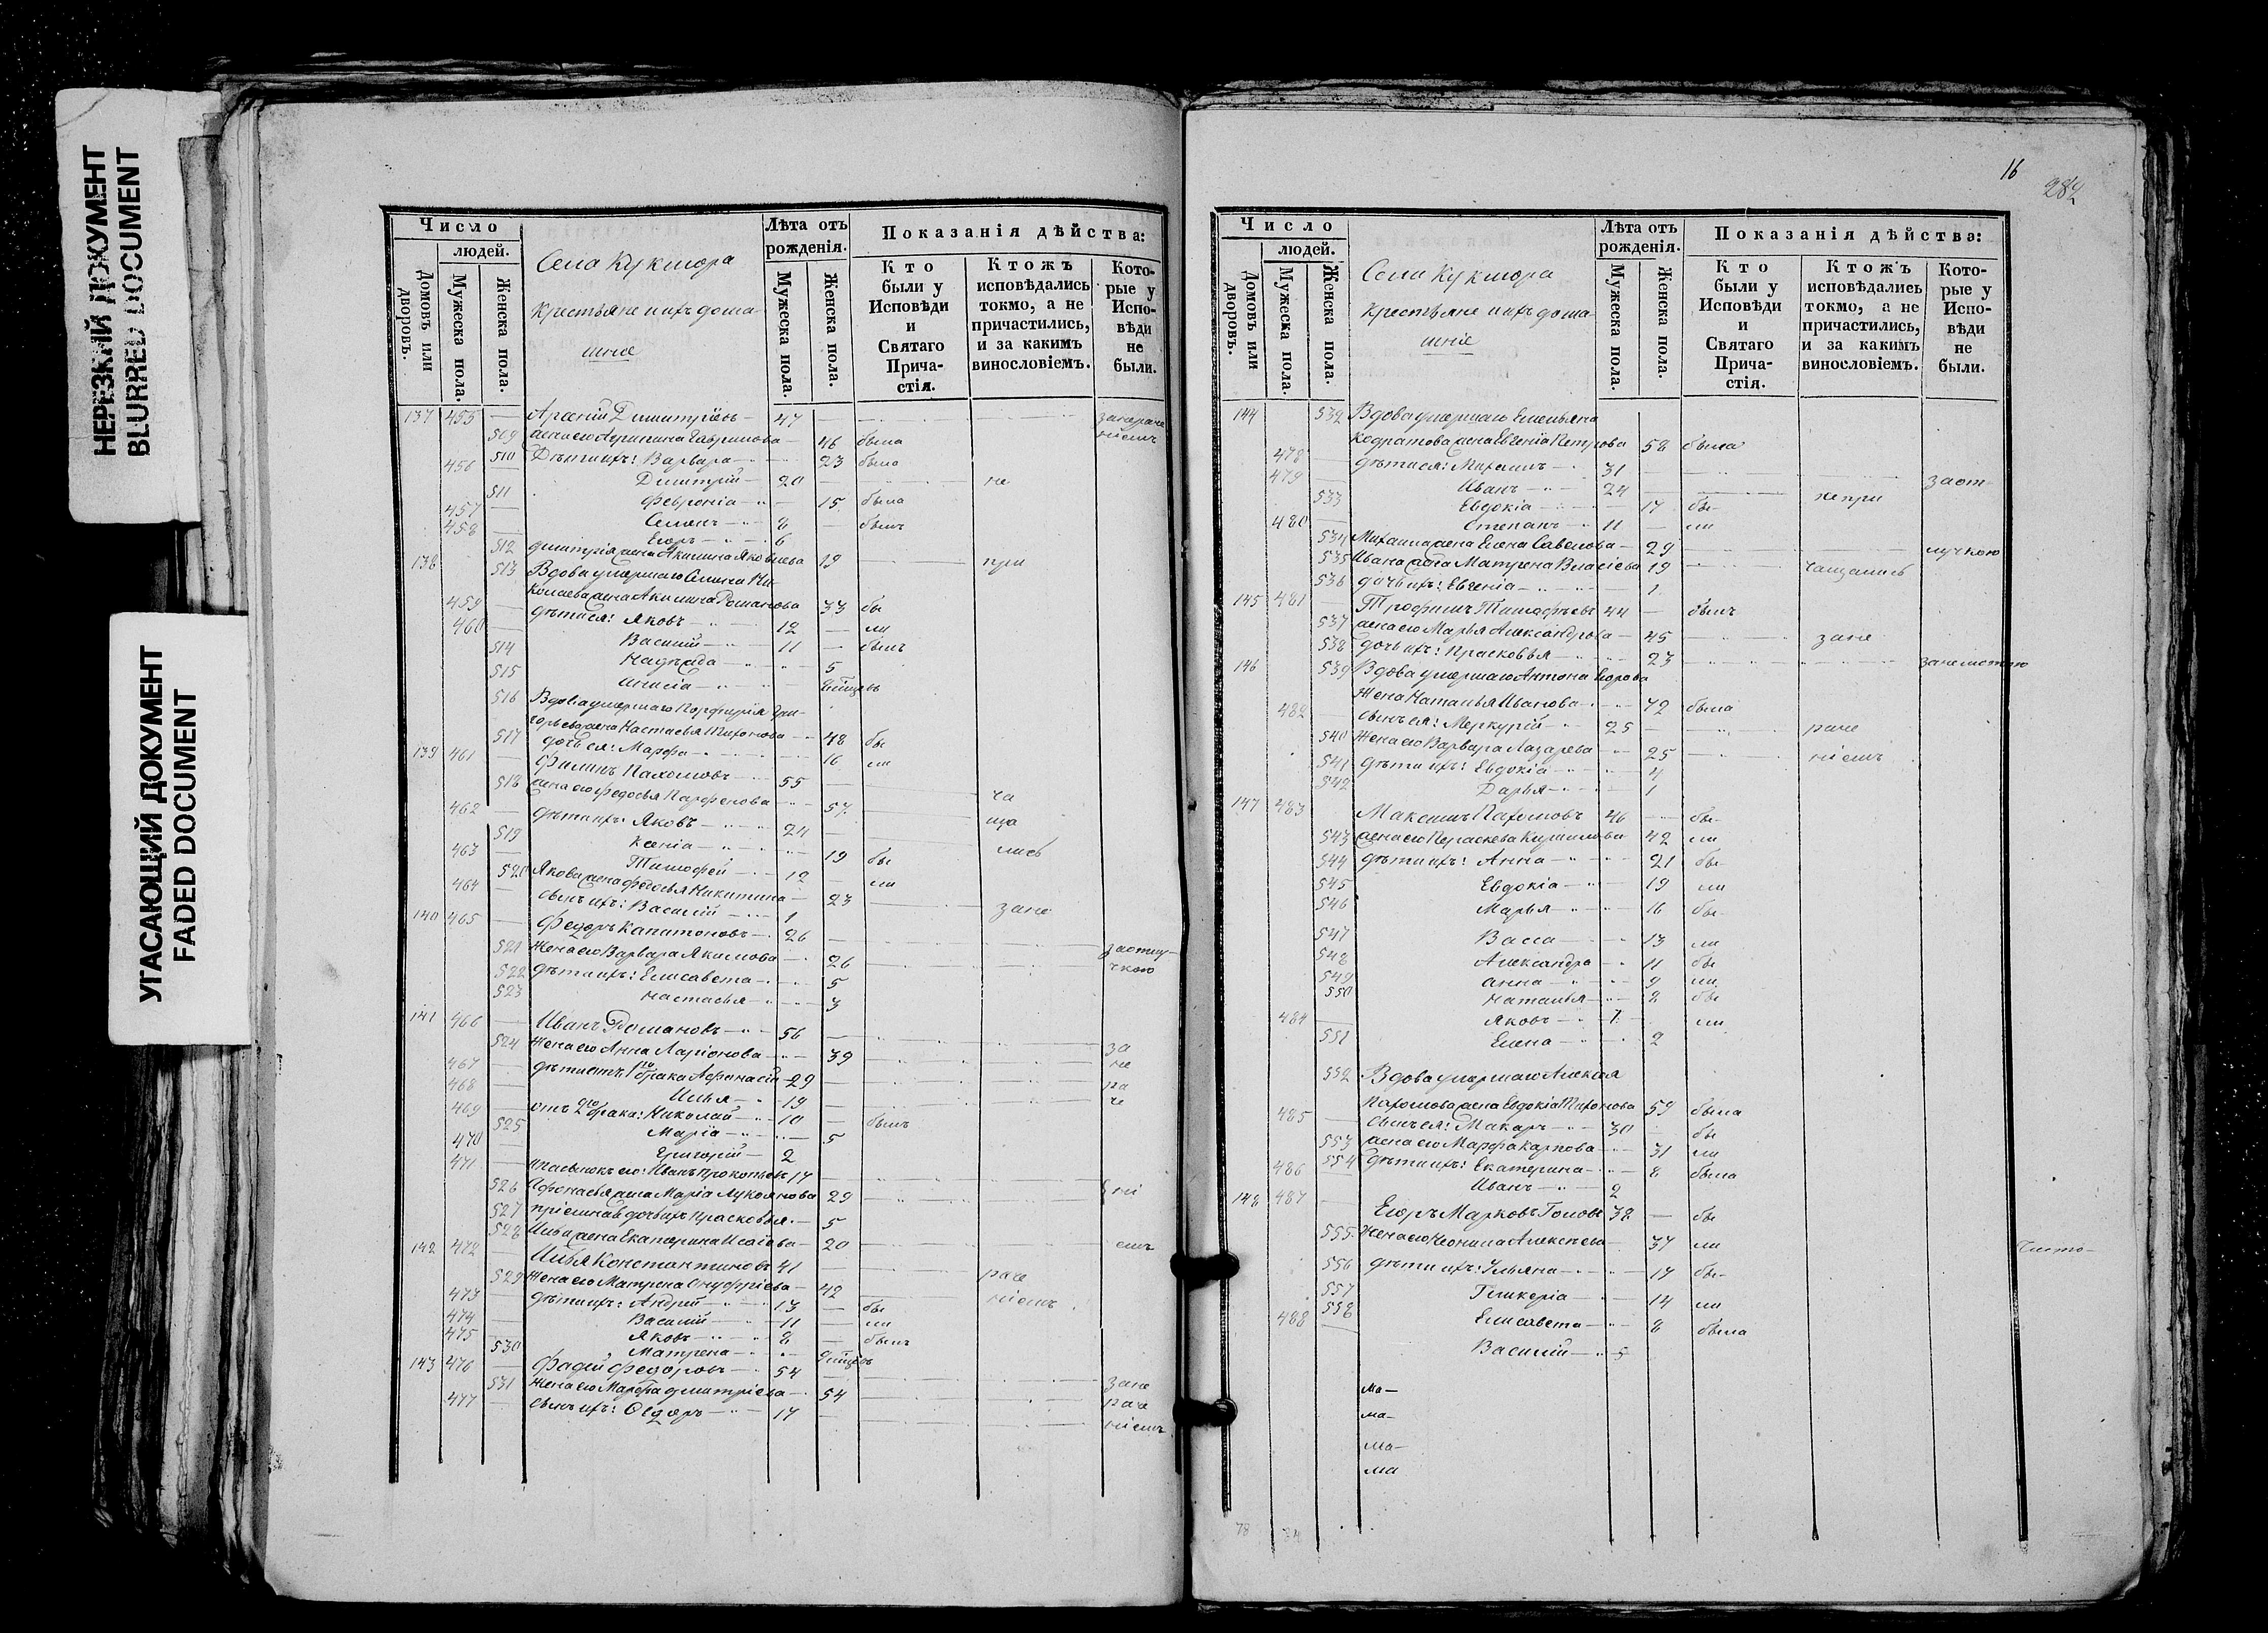 НЕРЕЗКИЙ ДОКУМЕНТ
BLURRED DOCUMENT
УГАСАЮЩИЙ ДОКУМЕНТ
FADED DOCUMENT
Число
людей.
Домовъ или дворовъ.
Мужеска пола.
Женска пола.
Села Кукмора
крестьяне и ихъ дома-
шніе
Лѣта отъ рожденія.
Мужеска пола.
Женска пола.
Показанія дѣйства:
Кто были у Исповѣди и Святаго Прича-стія.
Ктожъ исповѣдались токмо, а не причастились, и за какимъ винословіемъ.
Кото-рые у Испо-вѣди не были.
137 455 — Арсеній Димитріевъ — 47
509 жена его Агрипина Гаврилова — 46 была
510 Дѣти ихъ: Варвара — 23 была
456 Димитрій — 20 — не
511 Февронія — 15 была
457 — Семенъ — 8 — былъ
458 — Егоръ — 6
512 Димитрія жена Акилина Яковлева 19 при
138 513 Вдова умершаго Семена Ни-
колаева жена Акилина Романова 33 бы
459 — дѣти ея: Яковъ — 12 — ли
460 — Василий — 11 — былъ
514 Надежда — 5
515 Анисія —
516 Вдова умершаго Порфирія Гри-
горьева жена Настасья Тихонова — 48 бы
517 дочь ея: Марфа — 16 ли
139 461 — Филипъ Пахомовъ — 55 —
518 жена его Федосья Парфенова — 57 ча
462 — дѣти ихъ: Яковъ — 24 — ща
519 Ксенія — 19 бы лись
463 — Тимофей — 12 — ли
520 Якова жена Федосья Никитина — 23
464 — сынъ ихъ: Василій — 1 зане
140 465 — Федоръ Капитоновъ — 26 —
521 Жена его Варвара Якимова — 26 за отлу-
522 дѣти ихъ: Елисавета — 5 чкою
523 Настасья — 3
141 466 — Иванъ Романовъ — 56 —
524 Жена его Анна Ларіонова — 39 за
467 — дѣти отъ 1го брака Афонасій — 29 — не
468 — Илья — 19 — ра
469 — отъ 2го брака: Николай — 10 — былъ че
525 Марія — 5
470 — Григорій — 2
471 — пасынокъ его: Иванъ Прокопьевъ 17
526 Афонасья жена Марія Лукоянова 29 ні
527 пріемная дочь ихъ Прасковья — 5
528 Ильи жена Екатерина Исаіева — 20 емъ
142 472 — Илья Константиновъ 41 —
529 Жена его Матрена Онуфріева — 42 раче
473 — дѣти ихъ: Андрей — 13 — бы ніемъ
474 — Василій — 11 — ли
475 — Яковъ — 8 — былъ
530 Матрена —
143 476 — Фадей Федоровъ — 54 —
531 Жена его Марфа Димитріева — 54 зане
477 — сынъ ихъ: Федоръ — 17 — раче
ніемъ
16
Число
людей.
Домовъ или дворовъ.
Мужеска пола.
Женска пола.
Села Кукмора
крестьяне и ихъ дома-
шніе
Лѣта отъ рожденія.
Мужеска пола.
Женска пола.
Показанія дѣйства:
Кто были у Исповѣди и Святаго Прича-стія.
Ктожъ исповѣдались токмо, а не причастились, и за какимъ винословіемъ.
Кото-рые у Испо-вѣди не были.
144 532 Вдова умершаго Емельяна
Кодратова жена Евгенія Петрова 58 была
478 — дѣти ея: Михаилъ — 31
479 — Иванъ — 24 — за от-
533 Евдокія — 17 бы- не при
480 — Степанъ — 11 — ли
534 Михаила жена Елена Савелова — 29 лучкою
535 Ивана жена Матрена Власіева 19 чащались
536 дочь ихъ: Евгенія — 1
145 481 — Трофимъ Тимофѣевъ 44 — былъ
537 жена его Марья Александрова — 45 зане
538 дочь ихъ: Прасковья — 23
146 539 Вдова умершаго Антона Егорова
Жена Наталья Иванова — 72 была
482 — сынъ ея: Меркурій — 25 — раче
540 Жена его Варвара Лазарева — 25 ніемъ
541 дѣти ихъ: Евдокія — 4
542 Дарья — 1
147 483 Максимъ Пахомовъ 46 — бы-
543 жена его Параскева Кирилова 42 ли
544 дѣти ихъ: Анна — 21 бы-
545 Евдокія — 19 ли
546 Марья — 16 бы-
547 Васса — 13 ли
548 Александра — 11 бы
549 Анна — 9 ли
550 Наталья — 8 бы
484 — Яковъ — 7 ли
551 Елена — 2
552 Вдова умершаго Алексѣя
Пахомова жена Евдокія Тихонова 59 была
485 — сынъ ея: Макаръ — 30 — бы
553 жена его Марфа Карпова — 31 ли
554 дѣти ихъ: Екатерина — 8 была
486 — Иванъ — 2
148 487 — Егоръ Марковъ 38 — бы
555 Жена его Неонила Алексѣева 37 ли
556 дѣти ихъ: Ульяна — 17 бы-
557 Гликерія — 14 ли
558 Елисавета — 8 была
488 — Василій — 5